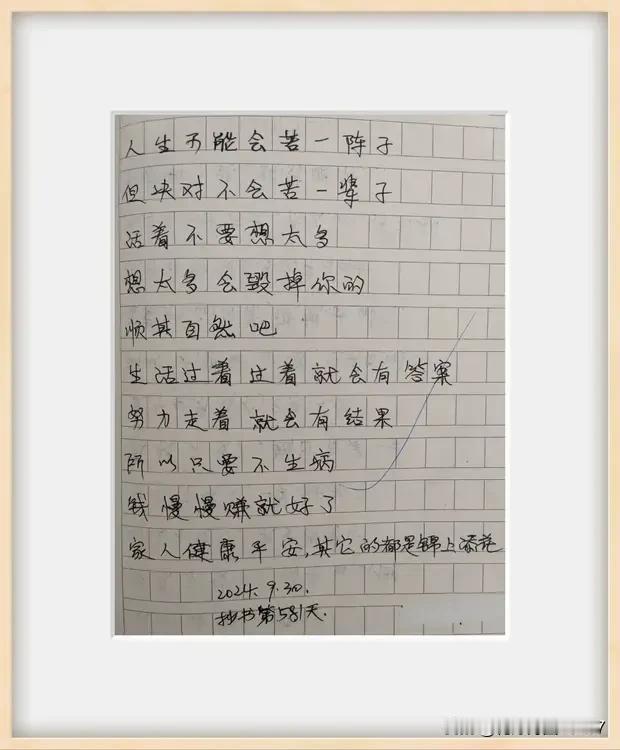 人生可能会苦一阵子
但决对不会苦一辈子
活着不要想太多
想太多会毁掉你的
顺其自然吧
生活过着过着就会有答案
努力走着就会有结果
所以只要不生病
钱慢慢赚就好了
家人健康平安,其它的都是锦上添花
2024.9.30.
抄书第581天.